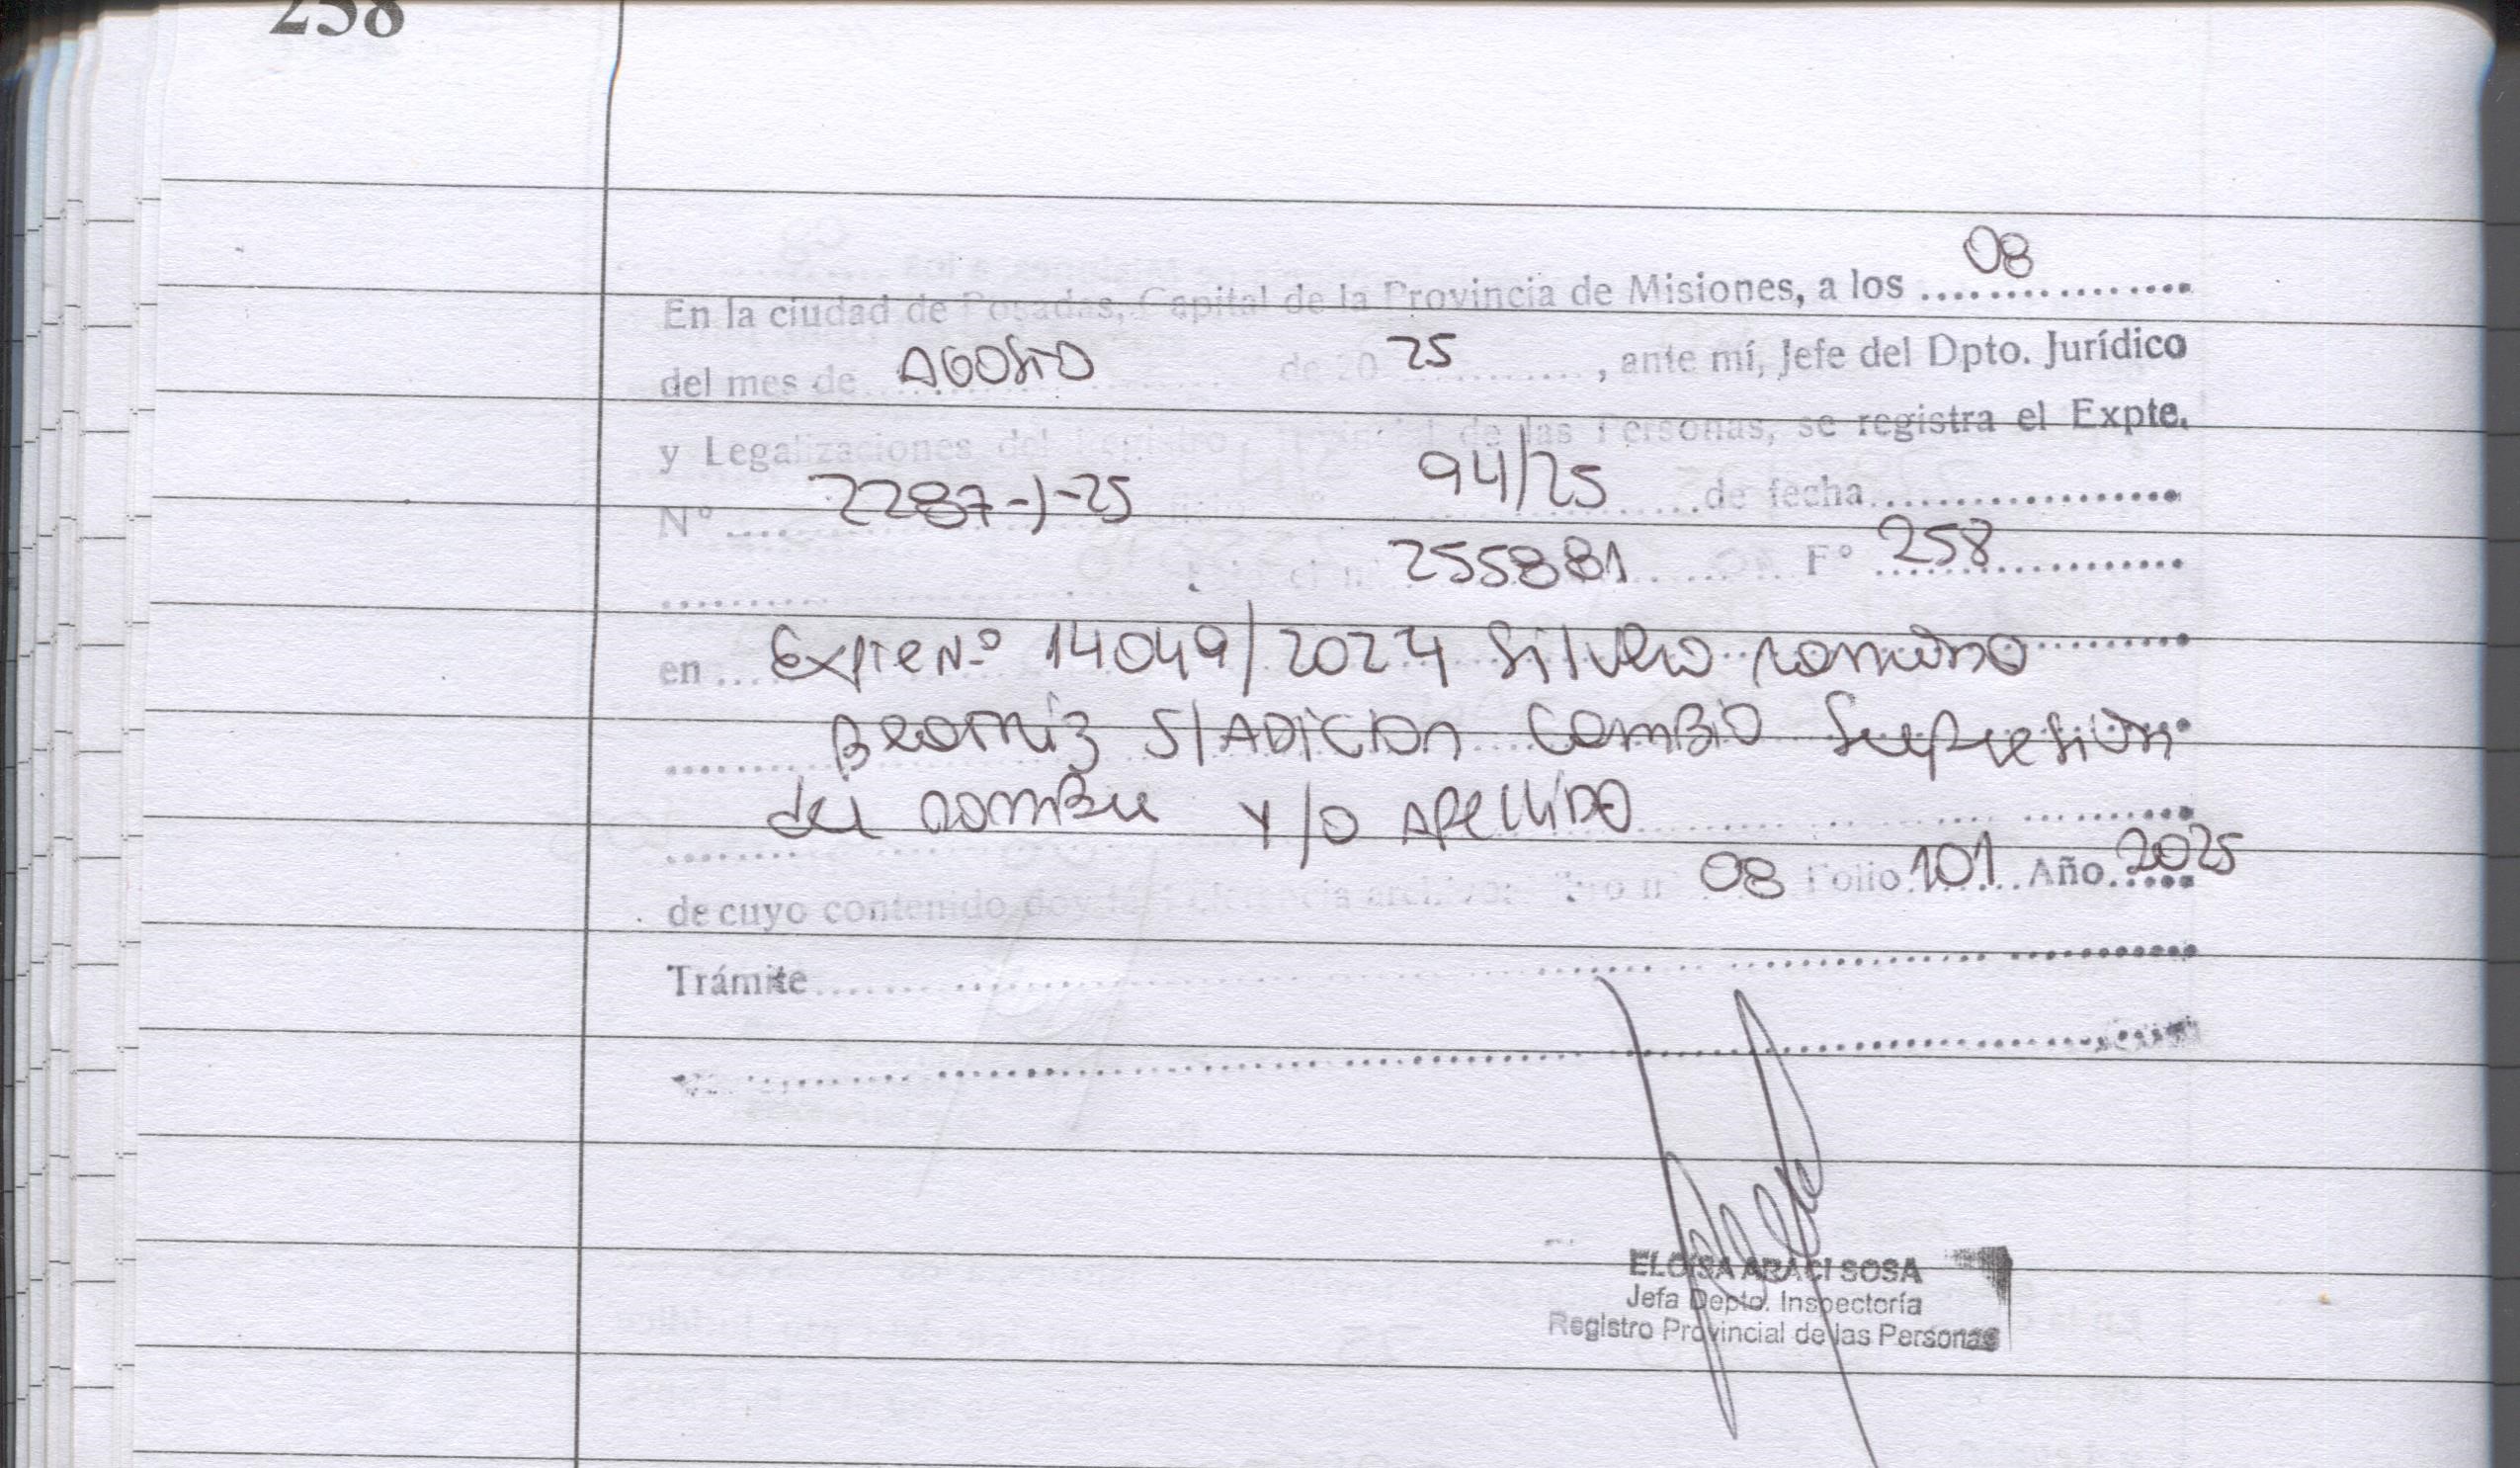 258
En la ciudad de Posadas, Capital de la Provincia de Misiones, a los 08
del mes de AGOSTO de 20 25, ante mí, Jefe del Dpto. Jurídico
y Legalizaciones del Registro Provincial de las Personas, se registra el Expte.
Nº 2287-J-25 94/25 de fecha
255881 Fº 258
en Expte Nº 14049/2024 Silvero Romero
Beatriz S/ADICION Cambio Supresion
del nombre y/o Apellido
de cuyo contenido doy fé 08 Folio 101 Año 2025
Trámite
ELOISA ARACI SOSA
Jefa Depto. Inspectoría
Registro Provincial de las Personas